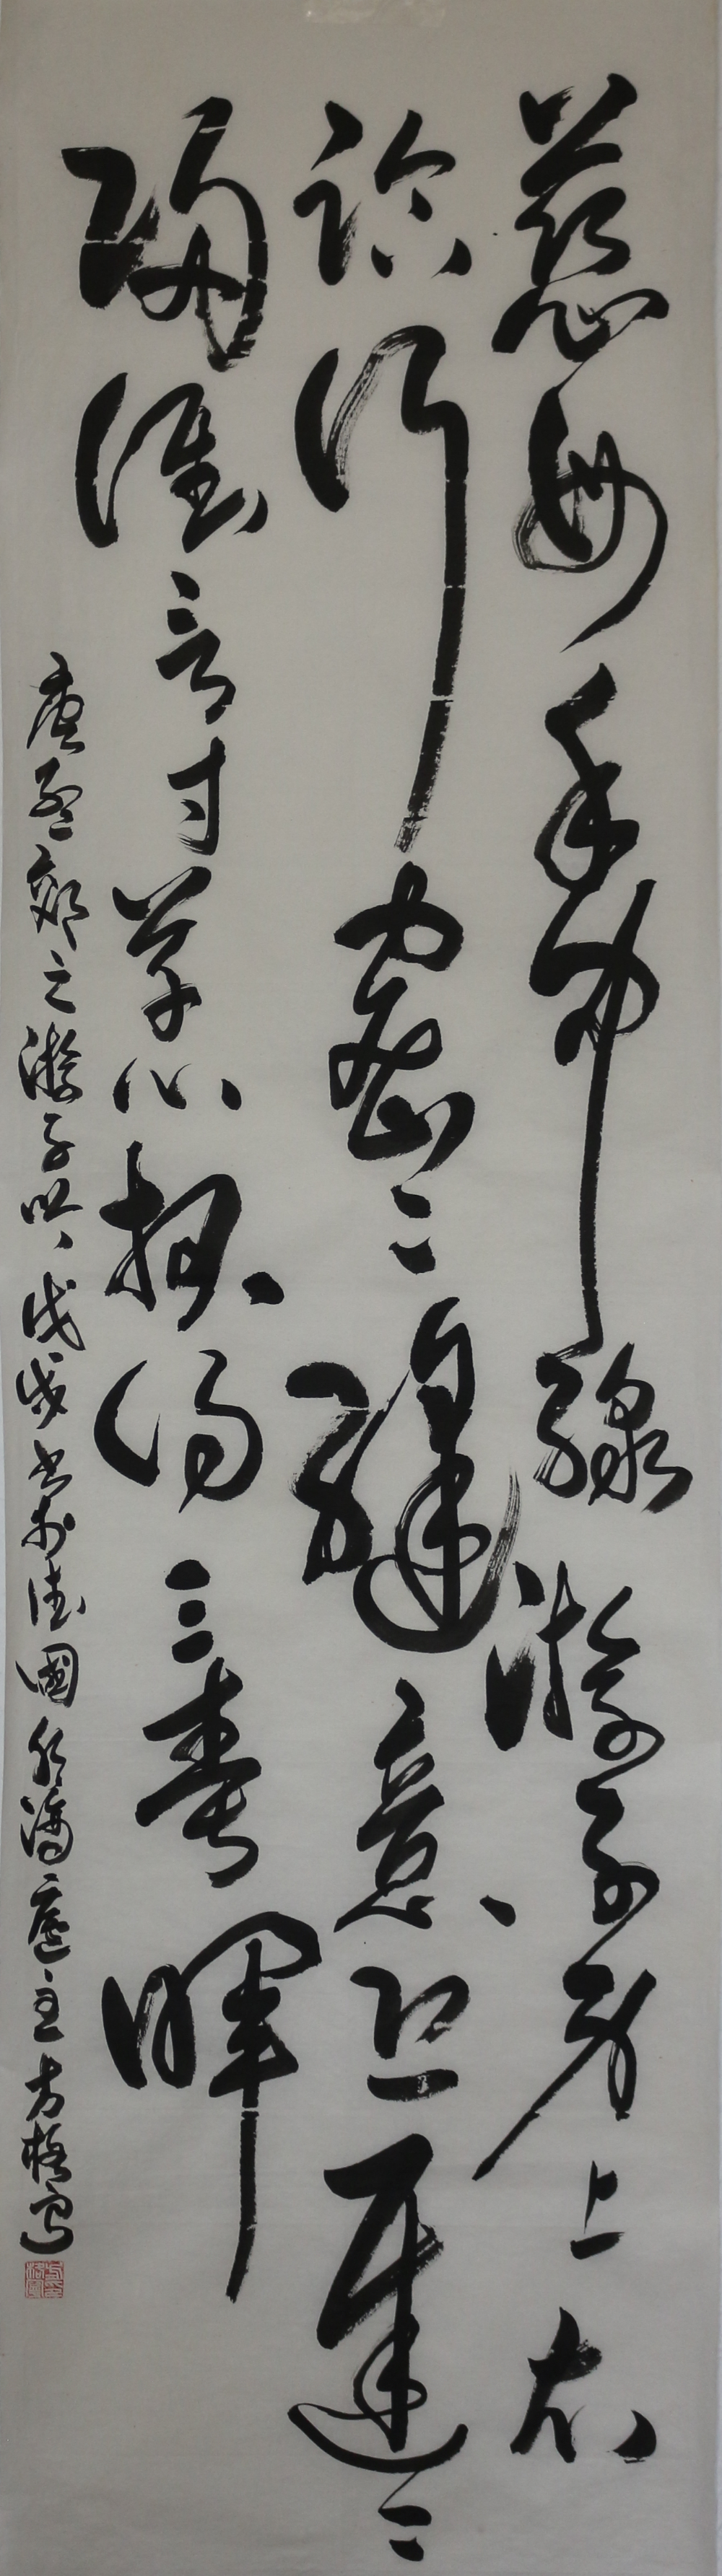 慈母手中線游子身上衣
臨行密〻縫意恐遲〻
歸誰言寸草心報得三春暉
唐孟郊之游子吟戊戌書於德國廬主方寫